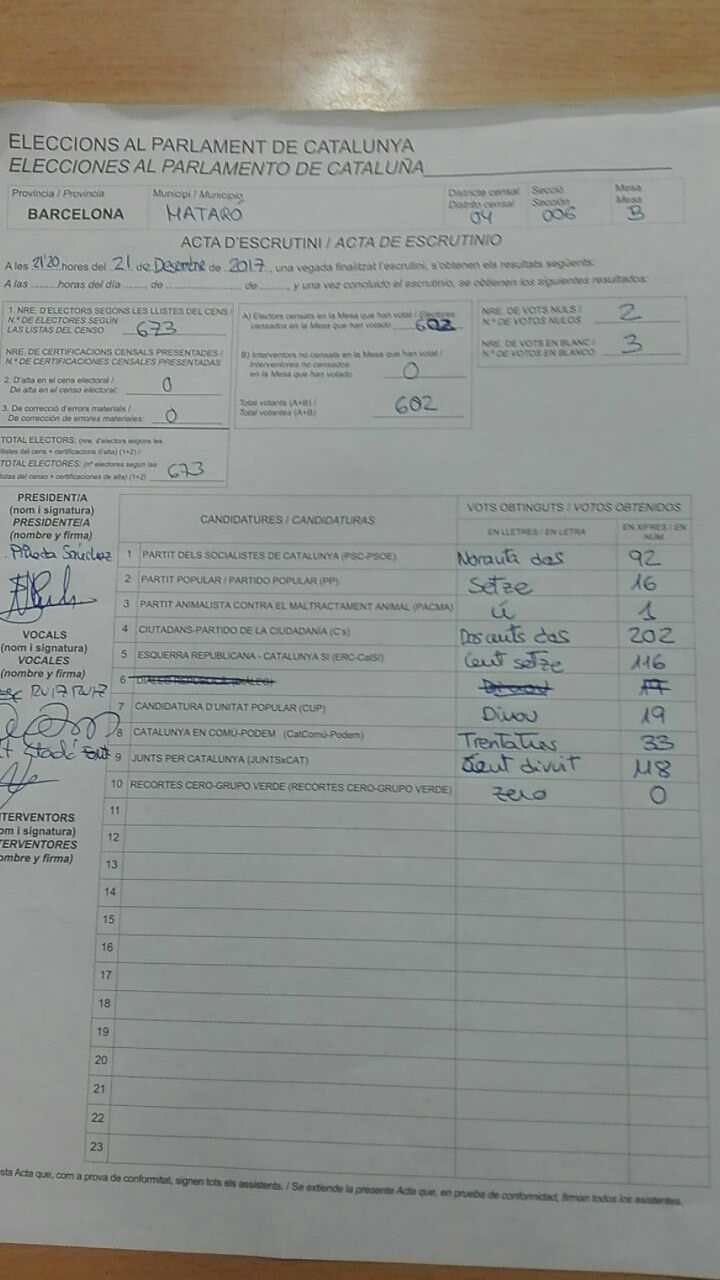 ELECCIONS AL PARLAMENT DE CATALUNYA
ELECCIONES AL PARLAMENTO DE CATALUÑA
Província / Provincia
BARCELONA
Municipi / Municipio
MATARÓ
Districte censal
Distrito censal
04
Secció
Sección
006
Mesa
Mesa
B
ACTA D'ESCRUTINI / ACTA DE ESCRUTINIO
A les 21'20 hores del 21 de Desembre de 2017, una vegada finalitzat l'escrutini, s'obtenen els resultats següents:
A las ........ horas del día ....... de ........................ de ........, y una vez concluido el escrutinio, se obtienen los siguientes resultados:
1. NRE. D'ELECTORS SEGONS LES LLISTES DEL CENS /
N.º DE ELECTORES SEGÚN
LAS LISTAS DEL CENSO 673
NRE. DE CERTIFICACIONS CENSALS PRESENTADES /
N.º DE CERTIFICACIONES CENSALES PRESENTADAS:
2. D'alta en el cens electoral: /
De alta en el censo electoral: 0
3. De correcció d'errors materials /
De corrección de errores materiales: 0
TOTAL ELECTORS: (nre. d'electors segons les
llistes del cens + certificacions d'alta) (1+2) /
TOTAL ELECTORES: (nº electores según las
listas del censo + certificaciones de alta) (1+2) 673
A) Electors censats en la Mesa que han votat / Electores
censados en la Mesa que han votado 602
B) Interventors no censats en la Mesa que han votat /
Interventores no censados
en la Mesa que han votado 0
Total votants (A+B) /
Total votantes (A+B) 602
NRE. DE VOTS NULS /
N.º DE VOTOS NULOS 2
NRE. DE VOTS EN BLANC /
N.º DE VOTOS EN BLANCO 3
PRESIDENT/A
(nom i signatura)
PRESIDENTE/A
(nombre y firma)
Sánchez
VOCALS
(nom i signatura)
VOCALES
(nombre y firma)
RUIZ RUIZ
NTERVENTORS
om i signatura)
TERVENTORES
ombre y firma)
CANDIDATURES / CANDIDATURAS
VOTS OBTINGUTS / VOTOS OBTENIDOS
EN LLETRES / EN LETRA
EN XIFRES / EN NÚM.
1 PARTIT DELS SOCIALISTES DE CATALUNYA (PSC-PSOE) Noranta dos 92
2 PARTIT POPULAR / PARTIDO POPULAR (PP) Setze 16
3 PARTIT ANIMALISTA CONTRA EL MALTRACTAMENT ANIMAL (PACMA) Ú 1
4 CIUTADANS-PARTIDO DE LA CIUDADANÍA (C's) Doscents dos 202
5 ESQUERRA REPUBLICANA - CATALUNYA SÍ (ERC-CatSí) Cent setze 116
6 DIÀLEG REPUBLICÀ (DIÀLEG) Dinou
7 CANDIDATURA D'UNITAT POPULAR (CUP) Dinou 19
8 CATALUNYA EN COMÚ-PODEM (CatComú-Podem) Trentatres 33
9 JUNTS PER CATALUNYA (JUNTSxCAT) Cent divuit 118
10 RECORTES CERO-GRUPO VERDE (RECORTES CERO-GRUPO VERDE) zero 0
11
12
13
14
15
16
17
18
19
20
21
22
23
sta Acta que, com a prova de conformitat, signen tots els assistents. / Se extiende la presente Acta que, en prueba de conformidad, firman todos los asistentes.